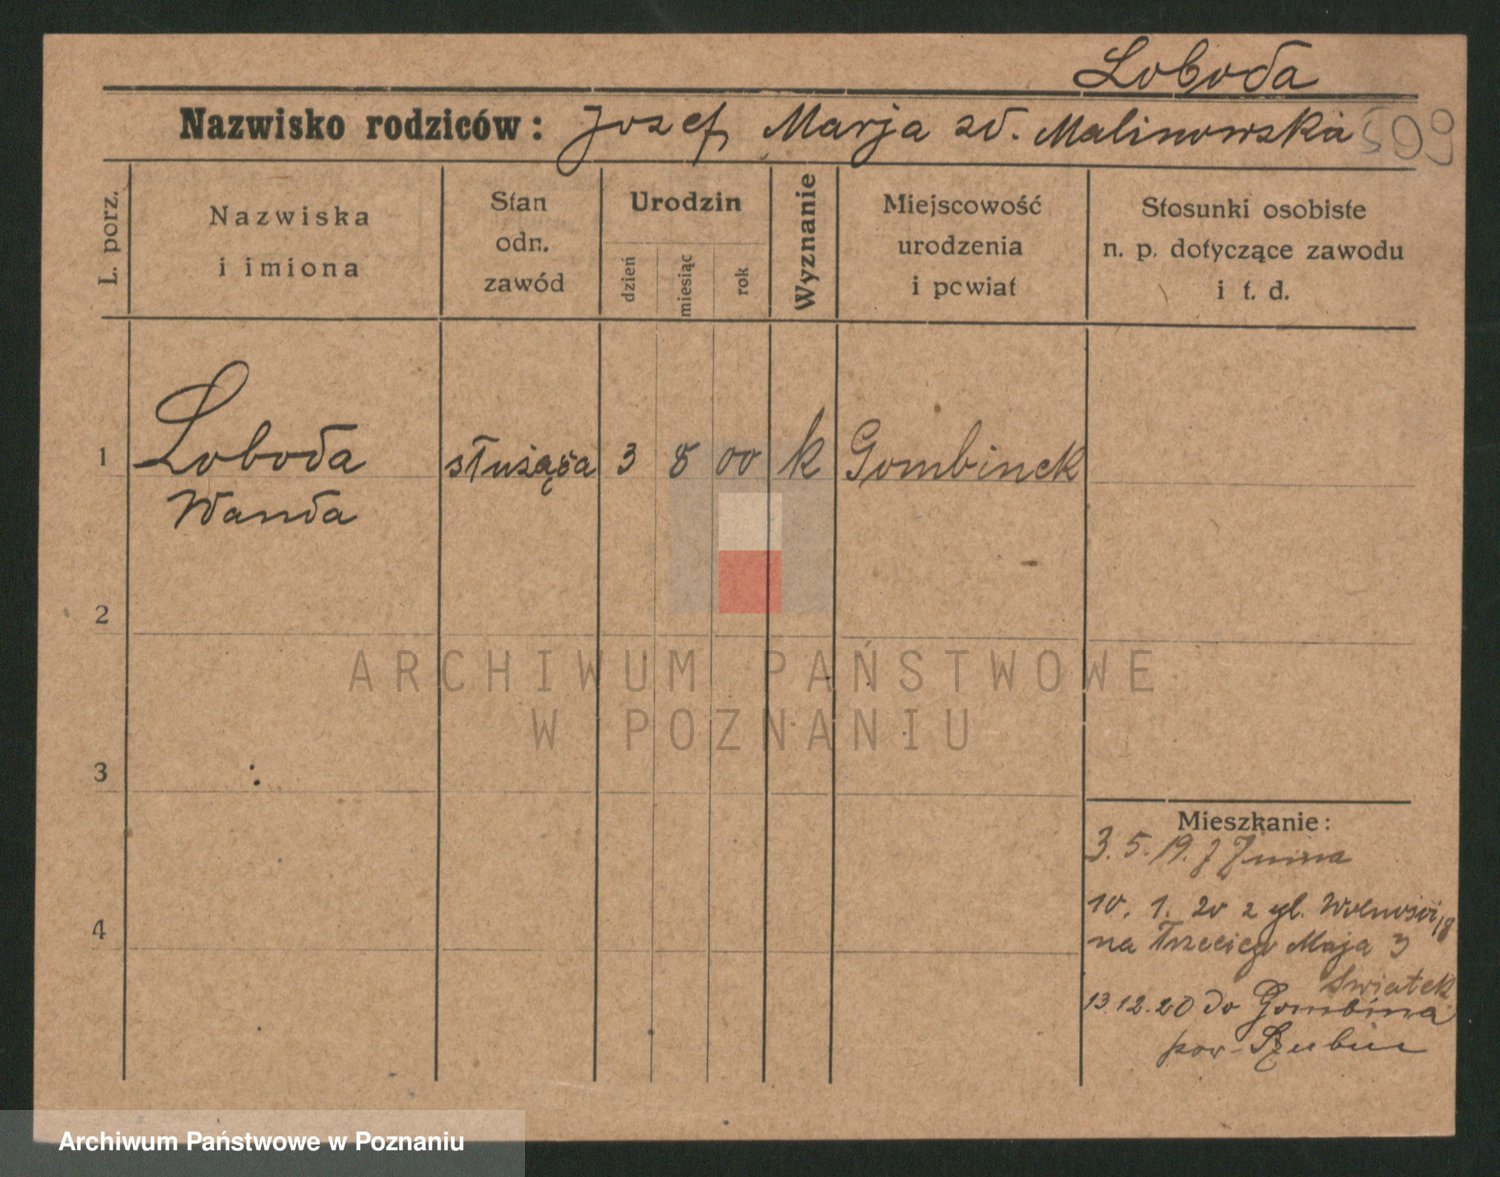 Loboda
Nazwisko rodziców: Jozef Marja zd. Malinowska 599
L. porz.
Nazwiska
i imiona
Stan
odn.
zawód
Urodzin
dzień
miesiąc
rok
Wyznanie
Miejscowość
urodzenia
i powiat
Stosunki osobiste
n. p. dotyczące zawodu
i t. d.
1 Loboda służąca 3 8 00 k Gombinek
Wanda
2
3
4
Mieszkanie:
3. 5. 19. z Żnina
10. 1. 20 z pl. Wolności 18
na Trzeciego Maja 3
Swiatek
13.12.20 do Gombina
pow. Szubin
ARCHIWUM PAŃSTWOWE
W POZNANIU
Archiwum Państwowe w Poznaniu